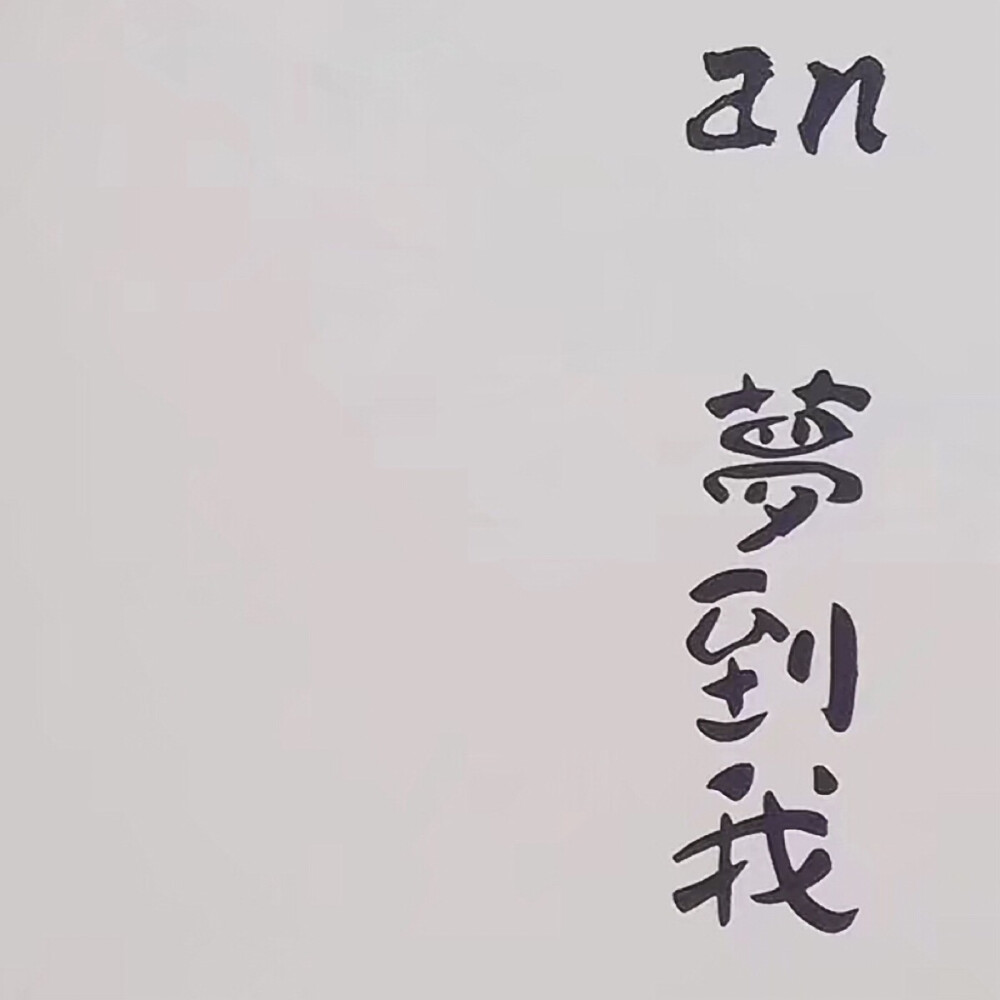 an
夢到我